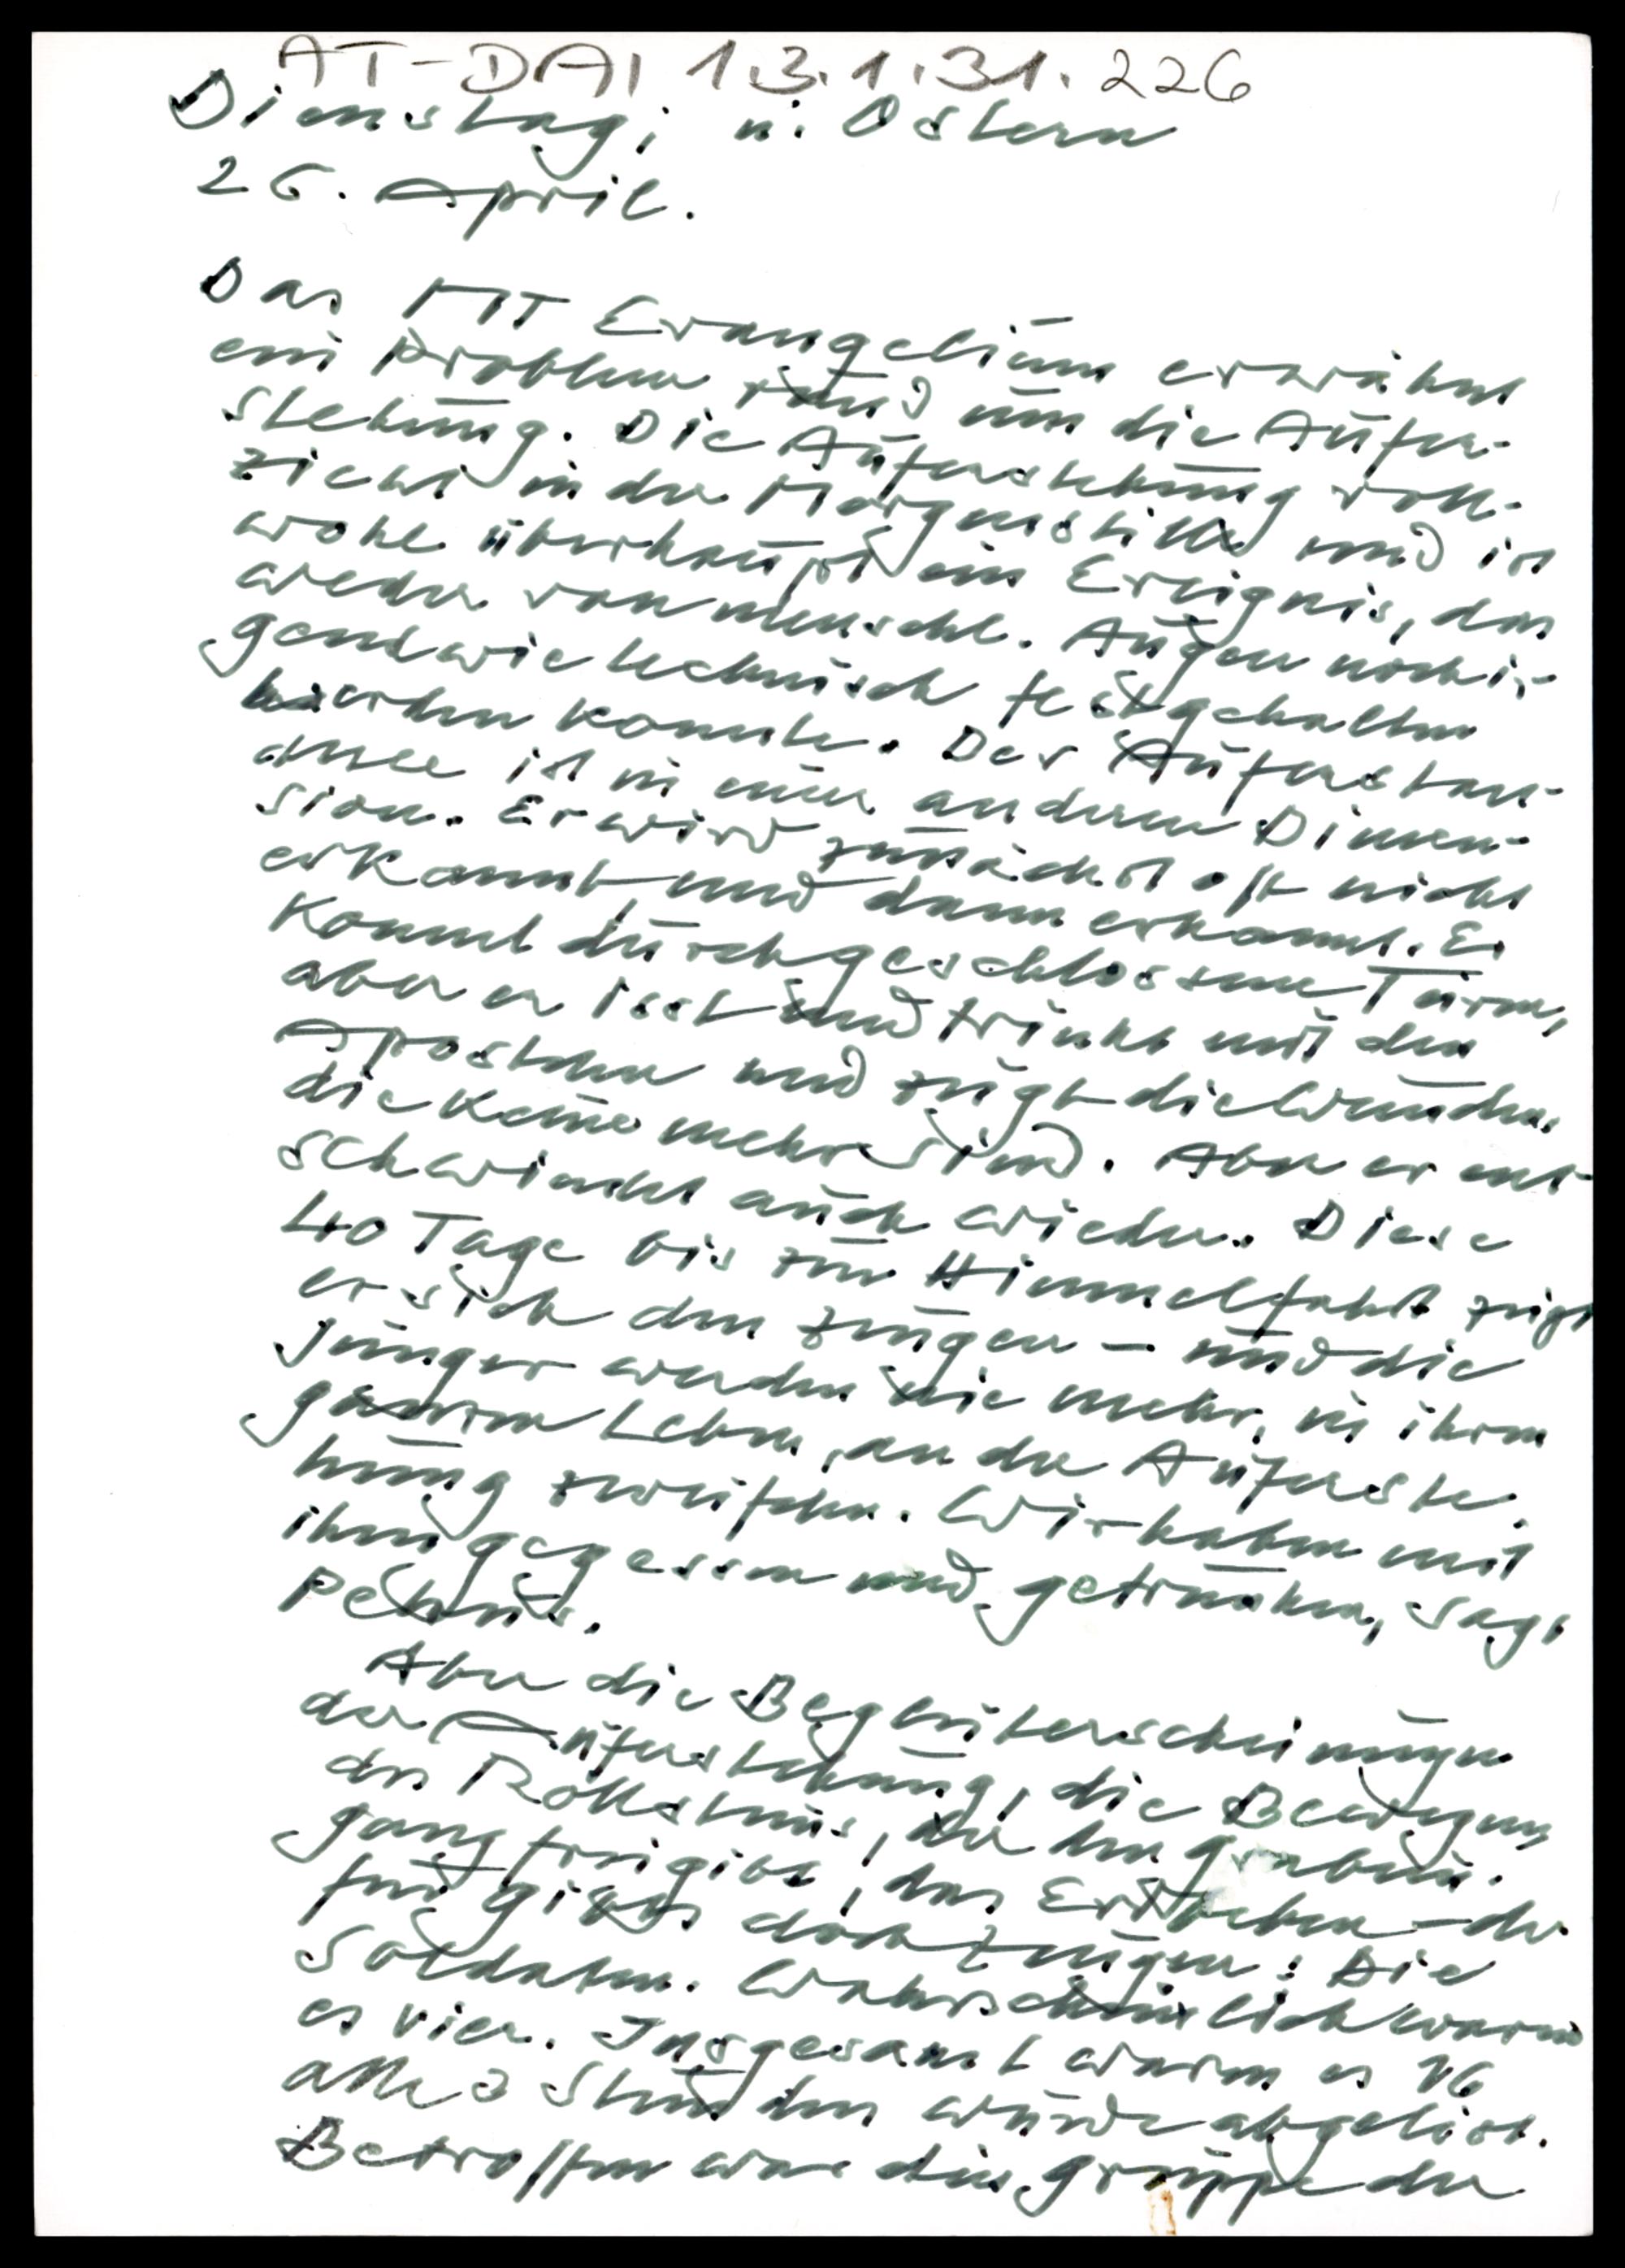 AT-DAI 1.3.1.31.226
Dienstag, n. Ostern
26. April.
Das MT Evangelium erwähnt
ein Problem rund um die Aufer-
stehung. Die Auferstehung voll-
zieht in der Morgenstille und ist
wohl überhaupt ein Ereignis, das
weder von menschl. Augen noch ir-
gendwie technisch festgehalten
werden konnte. Der Auferstan-
dene ist in einer anderen Dimen-
sion. Er wird zunächst oft nicht
erkannt und dann erkannt. Er
kommt durch geschlossene Türen,
aber er isst und trinkt mit den
Aposteln und zeigt die Wunden,
die keine mehr sind. Aber er ent-
schwindet auch wieder. Diese
40 Tage bis zur Himmelfahrt zeigt
er sich den Zeugen - und die
Jünger werden nie mehr, in ihrem
ganzen Leben, an der Auferste-
hung zweifeln. Wir haben mit
ihm gegessen und getrunken, sagt
Petrus.
Aber die Begleiterscheinungen
der Auferstehung, die Bewegung
des Rollsteins, der den Grabein-
gang freigibt, das Erdbeben - da
für gibt es doch Zeugen: Die
Soldaten. Wahrscheinlich waren
es vier. Insgesamt waren es 16
alle 3 Stunden wurde abgelöst.
Betroffen war die Gruppe der